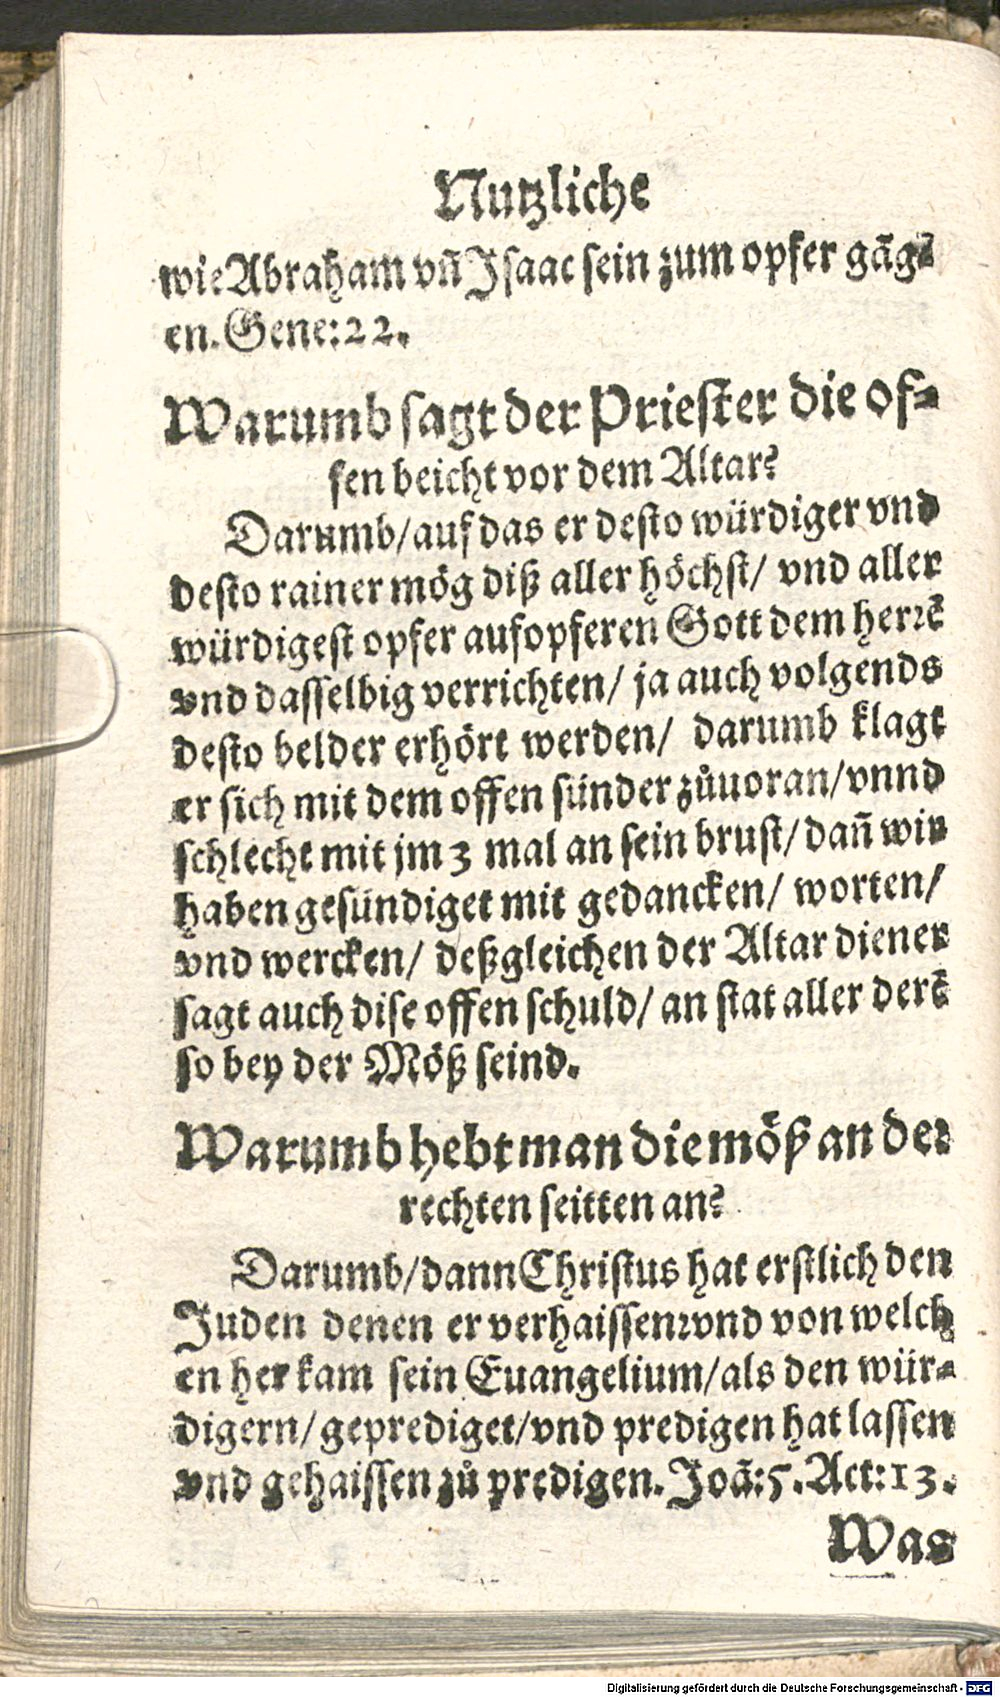 Nutzliche
wie Abraham vñ Isaac sein zum opfer gãg⸗
en. Gene: 22.
Warumb sagt der Priester die of⸗
fen beicht vor dem Altar?
Darumb/auf das er desto würdiger vnd
desto rainer mög diß aller höchst/ vnd aller
würdigest opfer aufopferen Gott dem herrẽ
vnd dasselbig verrichten/ ja auch volgends
desto belder erhört werden/ darumb klagt
er sich mit dem offen sünder zůuoran/vnnd
schlecht mit jm 3 mal an sein brust/ dañ wir
haben gesündiget mit gedancken/ worten/
vnd wercken/ deßgleichen der Altar diener
sagt auch dise offen schuld/ an stat aller derẽ
so bey der Möß seind.
Warumb hebt man die möß an der
rechten seitten an?
Darumb/dann Christus hat erstlich den
Juden denen er verhaissen vnd von welch
en her kam sein Euangelium/als den wür⸗
digern/geprediget/vnd predigen hat lassen
vnd gehaissen zů predigen. Joã: 5. Act: 13.
Was
Digitalisierung gefördert durch die Deutsche Forschungsgemeinschaft - DFG